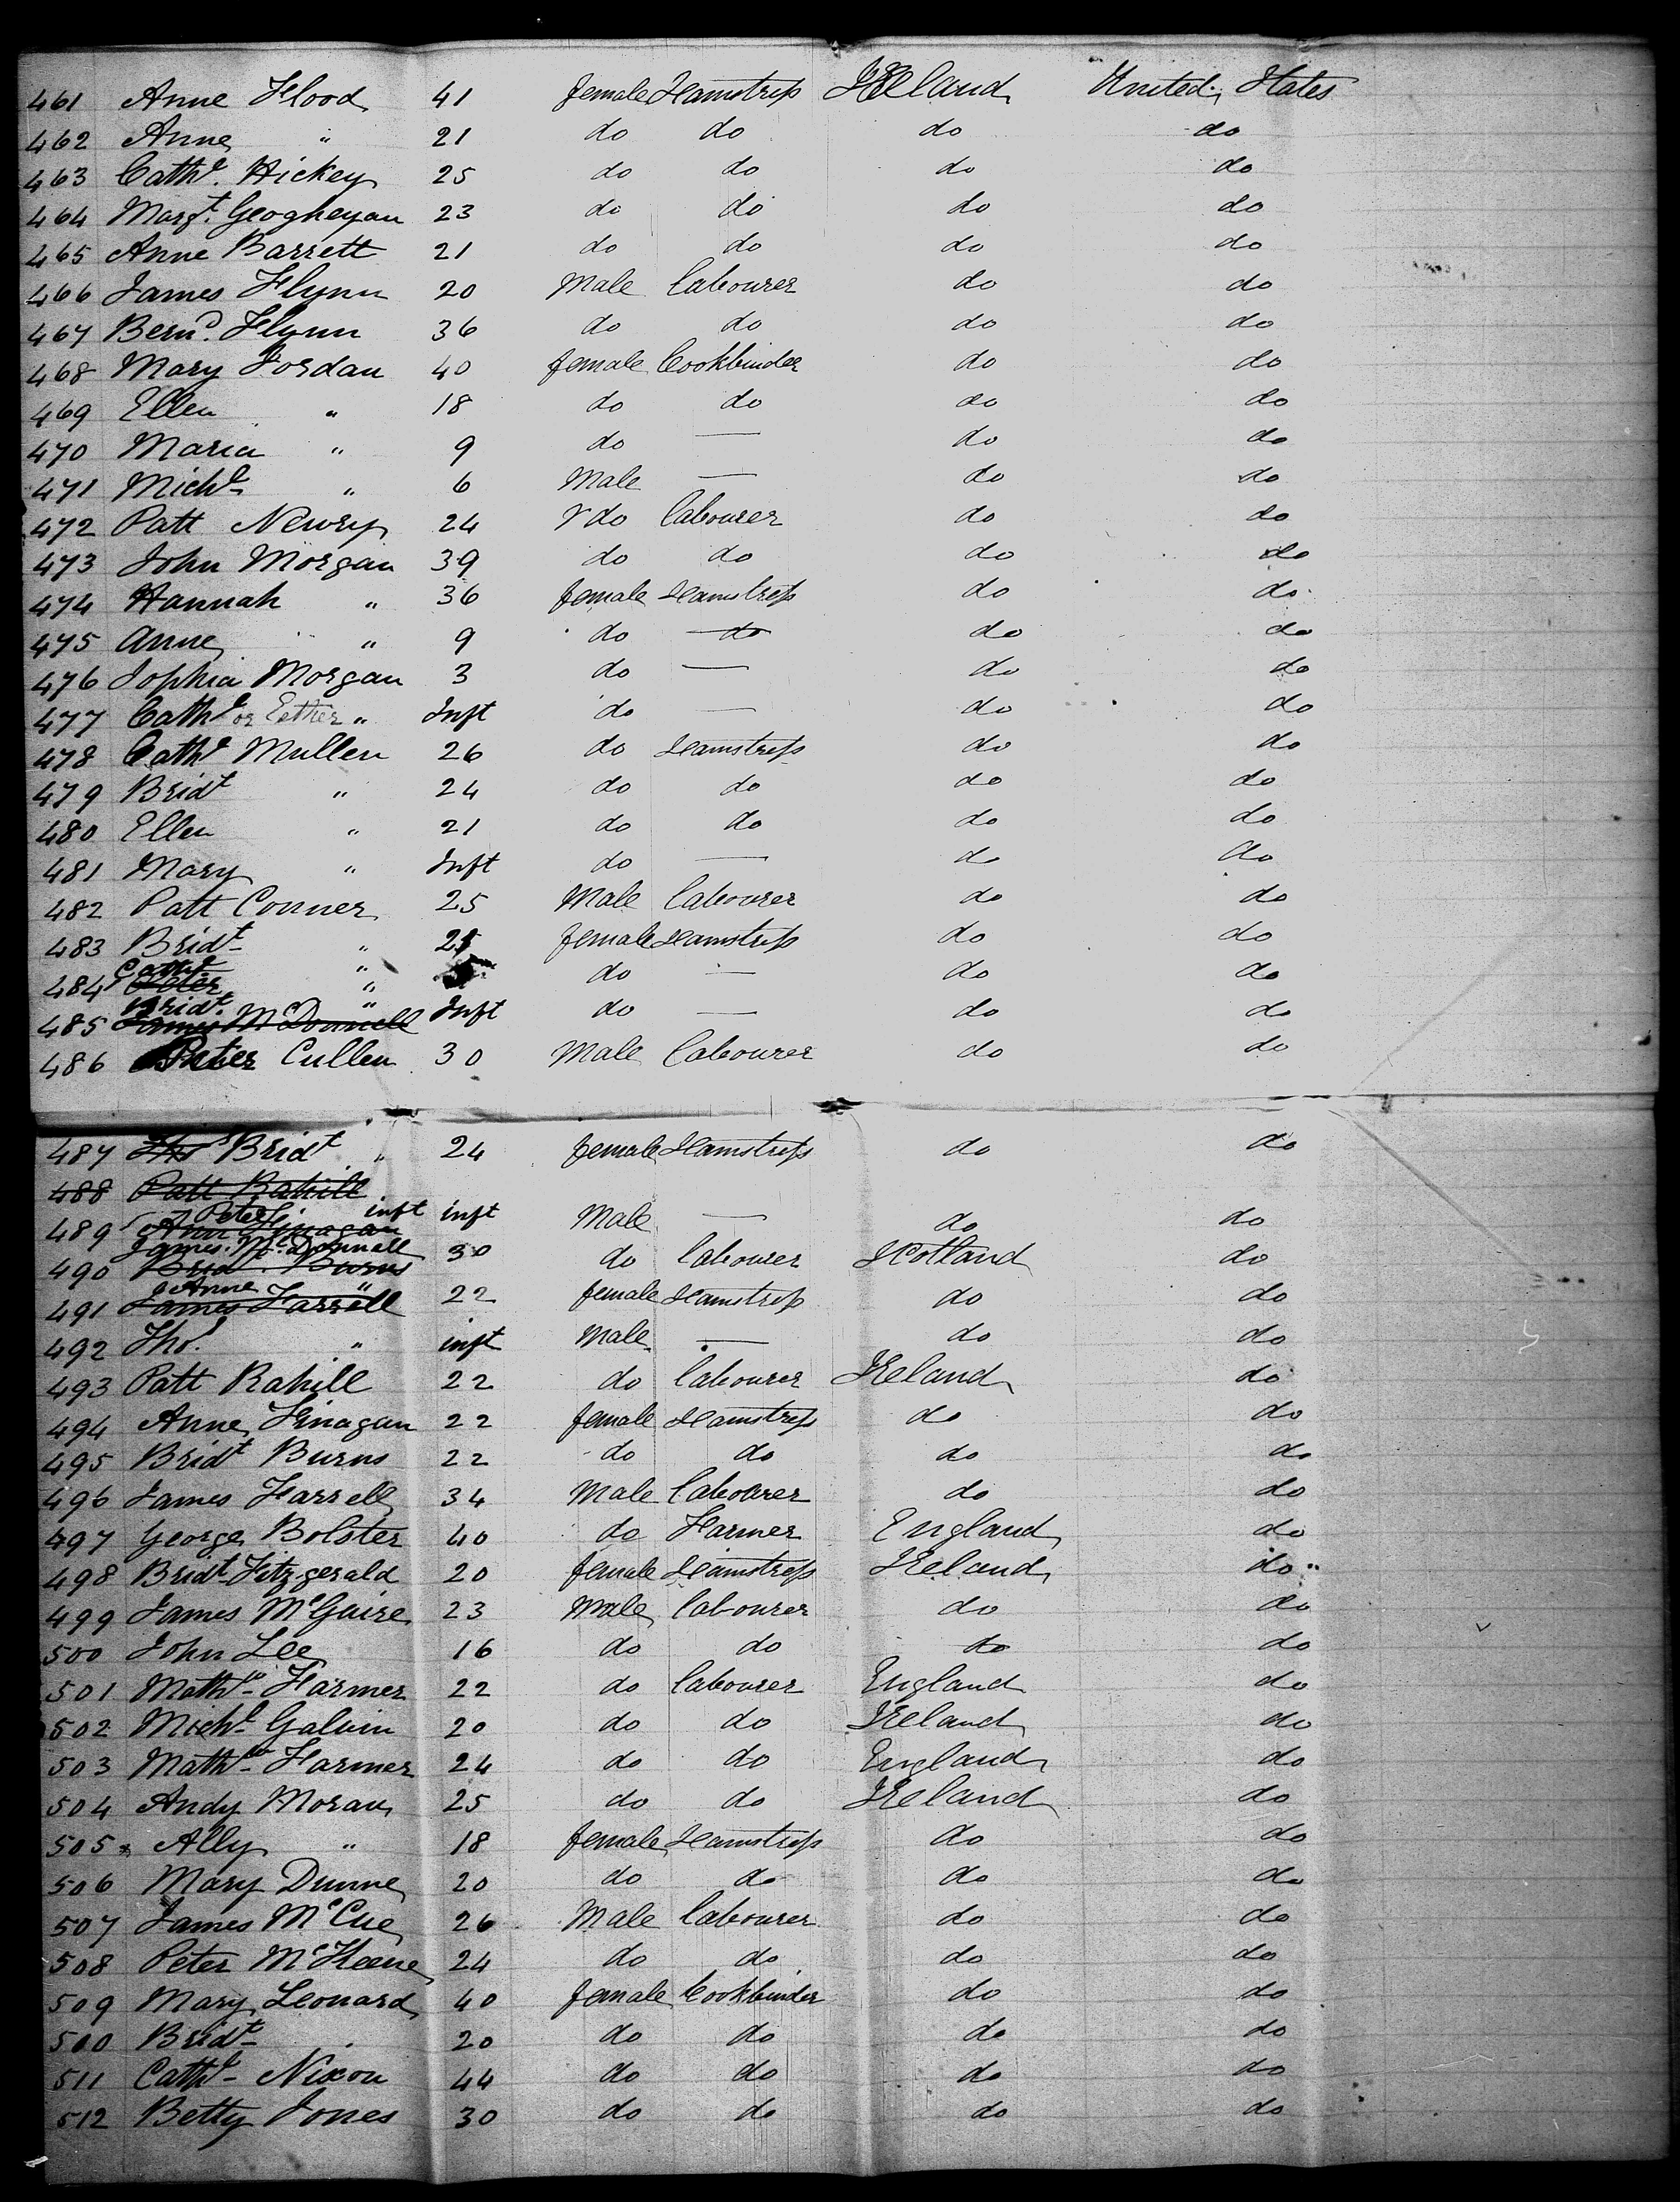 461 Anne Flood 41 female Seamstress Ireland United States
462 Anne " 21 do do do do
463 Cathe. Hickey 25 do do do do
464 Margt. Geoghegan 23 do do do do
465 Anne Barrett 21 do do do do
466 James Flynn 20 Male labourer do do
467 Bernd. Flynn 36 do do do do
468 Mary Jordan 40 female bookbinder do do
469 Ellen " 18 do do do do
470 Maria " 9 do — do do
471 Michl " 6 Male — do do
472 Patt Newry 24 do labourer do do
473 John Morgan 39 do do do do
474 Hannah " 36 female Seamstress do do
475 Anne " 9 do do do do
476 Sophia Morgan 3 do — do do
477 Cathe or Esther " Inft do — do do
478 Cathe Mullen 26 do Seamstress do do
479 Bridt " 24 do do do do
480 Ellen " 21 do do do do
481 Mary " Inft do — do do
482 Patt Conner 25 Male labourer do do
483 Bridt " 25 female Seamstress do do
484 Cathe Peter " do — do do
Bridt. "
485 James McDonnell Inft do — do do
486 Peter Cullen 30 Male labourer do do
487 Thos Bridt " 24 female Seamstress do do
488 Patt Rahill
Peter inft
489 Ann Finagan inft Male — do do
James McDonnell
490 Bridt. Burns 30 do labourer Scotland do
Anne "
491 James Farrell 22 female Seamstress do do
492 Thos. " inft Male — do do
493 Patt Rahill 22 do labourer Ireland do
494 Anne Finagan 22 female Seamstress do do
495 Bridt Burns 22 do do do do
496 James Farrell 34 Male labourer do do
497 George Bolster 40 do Farmer England do
498 Bridt Fitzgerald 20 female Seamstress Ireland do
499 James McGuire 23 Male labourer do do
500 John Lee 16 do do do do
501 Mathw Farmer 22 do labourer England do
502 Michl Galvin 20 do do Ireland do
503 Mathw Farmer 24 do do England do
504 Andy Moran 25 do do Ireland do
505 Ally " 18 female Seamstress do do
506 Mary Dunne 20 do do do do
507 James McCue 26 Male labourer do do
508 Peter McKeene 24 do do do do
509 Mary Leonard 40 female bookbinder do do
500 Bridt " 20 do do do do
511 Cathe Nixon 44 do do do do
512 Betty Jones 30 do do do do